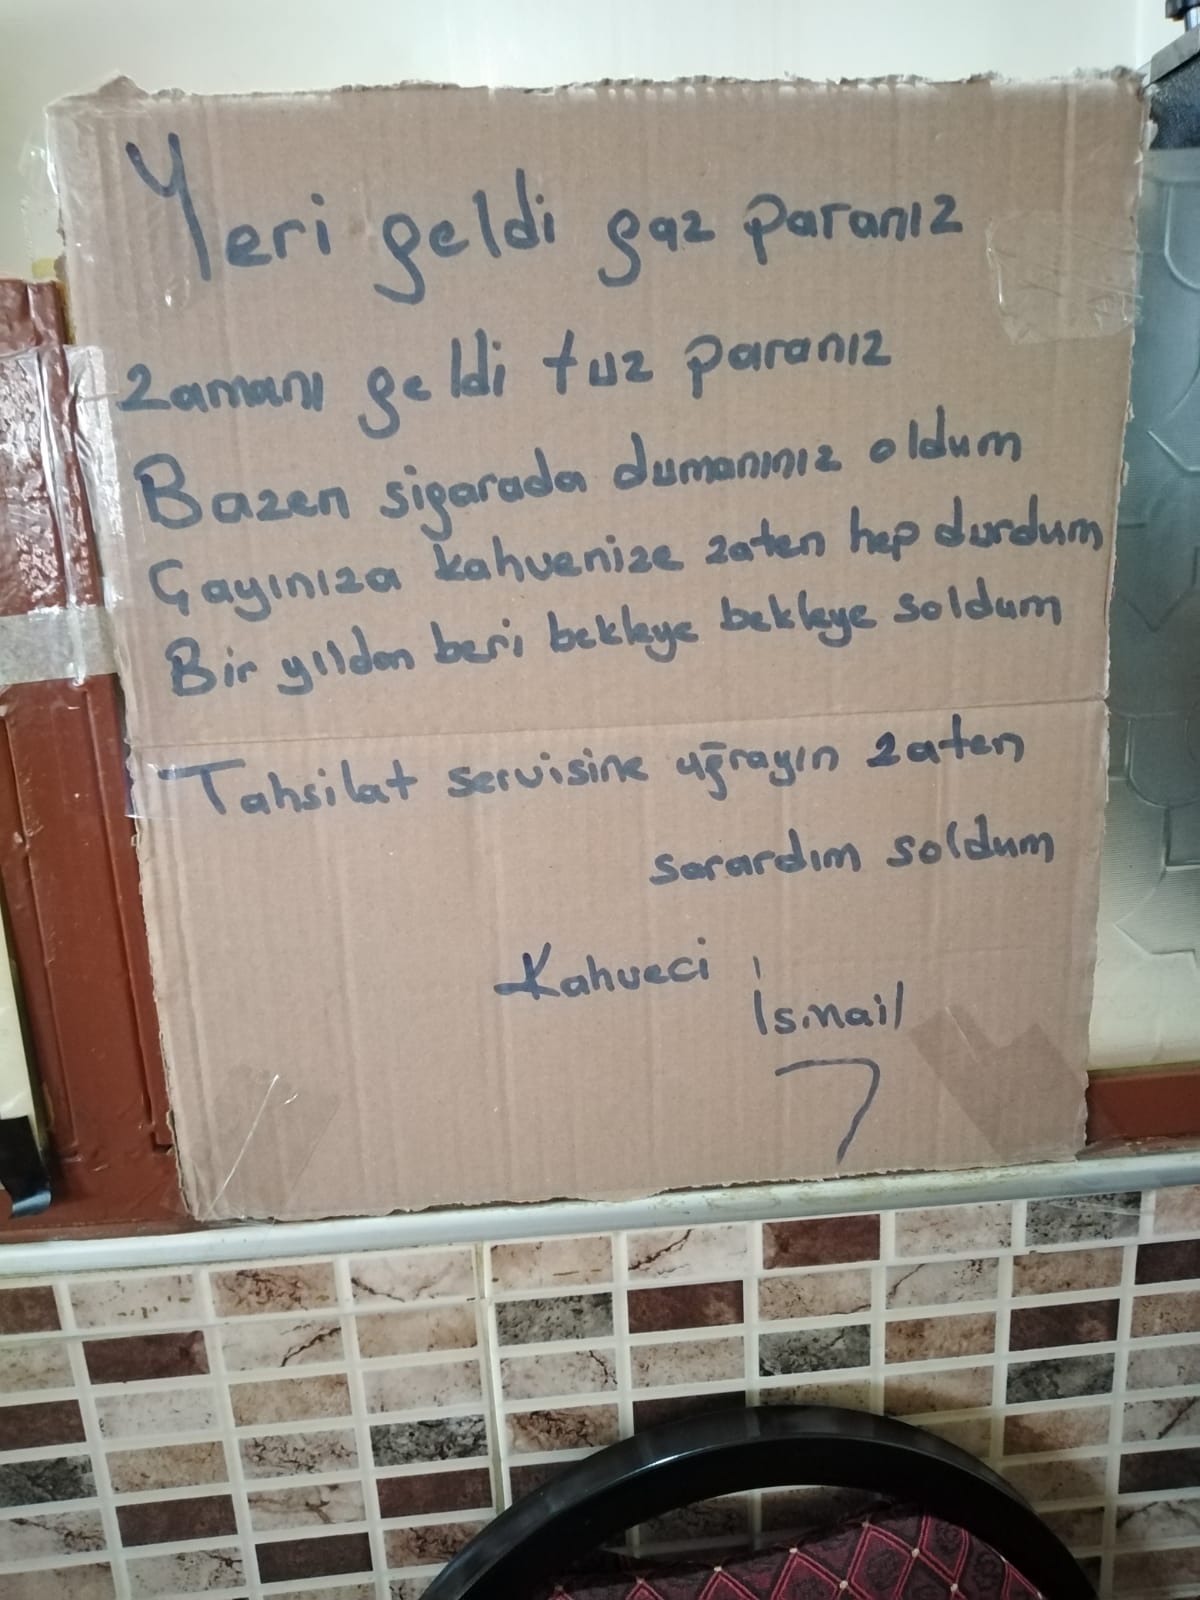 Yeri geldi gaz paranız
Zamanı geldi tuz paranız
Bazen sigarada dumanınız oldum
Çayınıza kahvenize zaten hep durdum
Bir yıldan beri bekleye bekleye soldum
Tahsilat servisine uğrayın zaten
sarardım soldum
Kahveci
İsmail